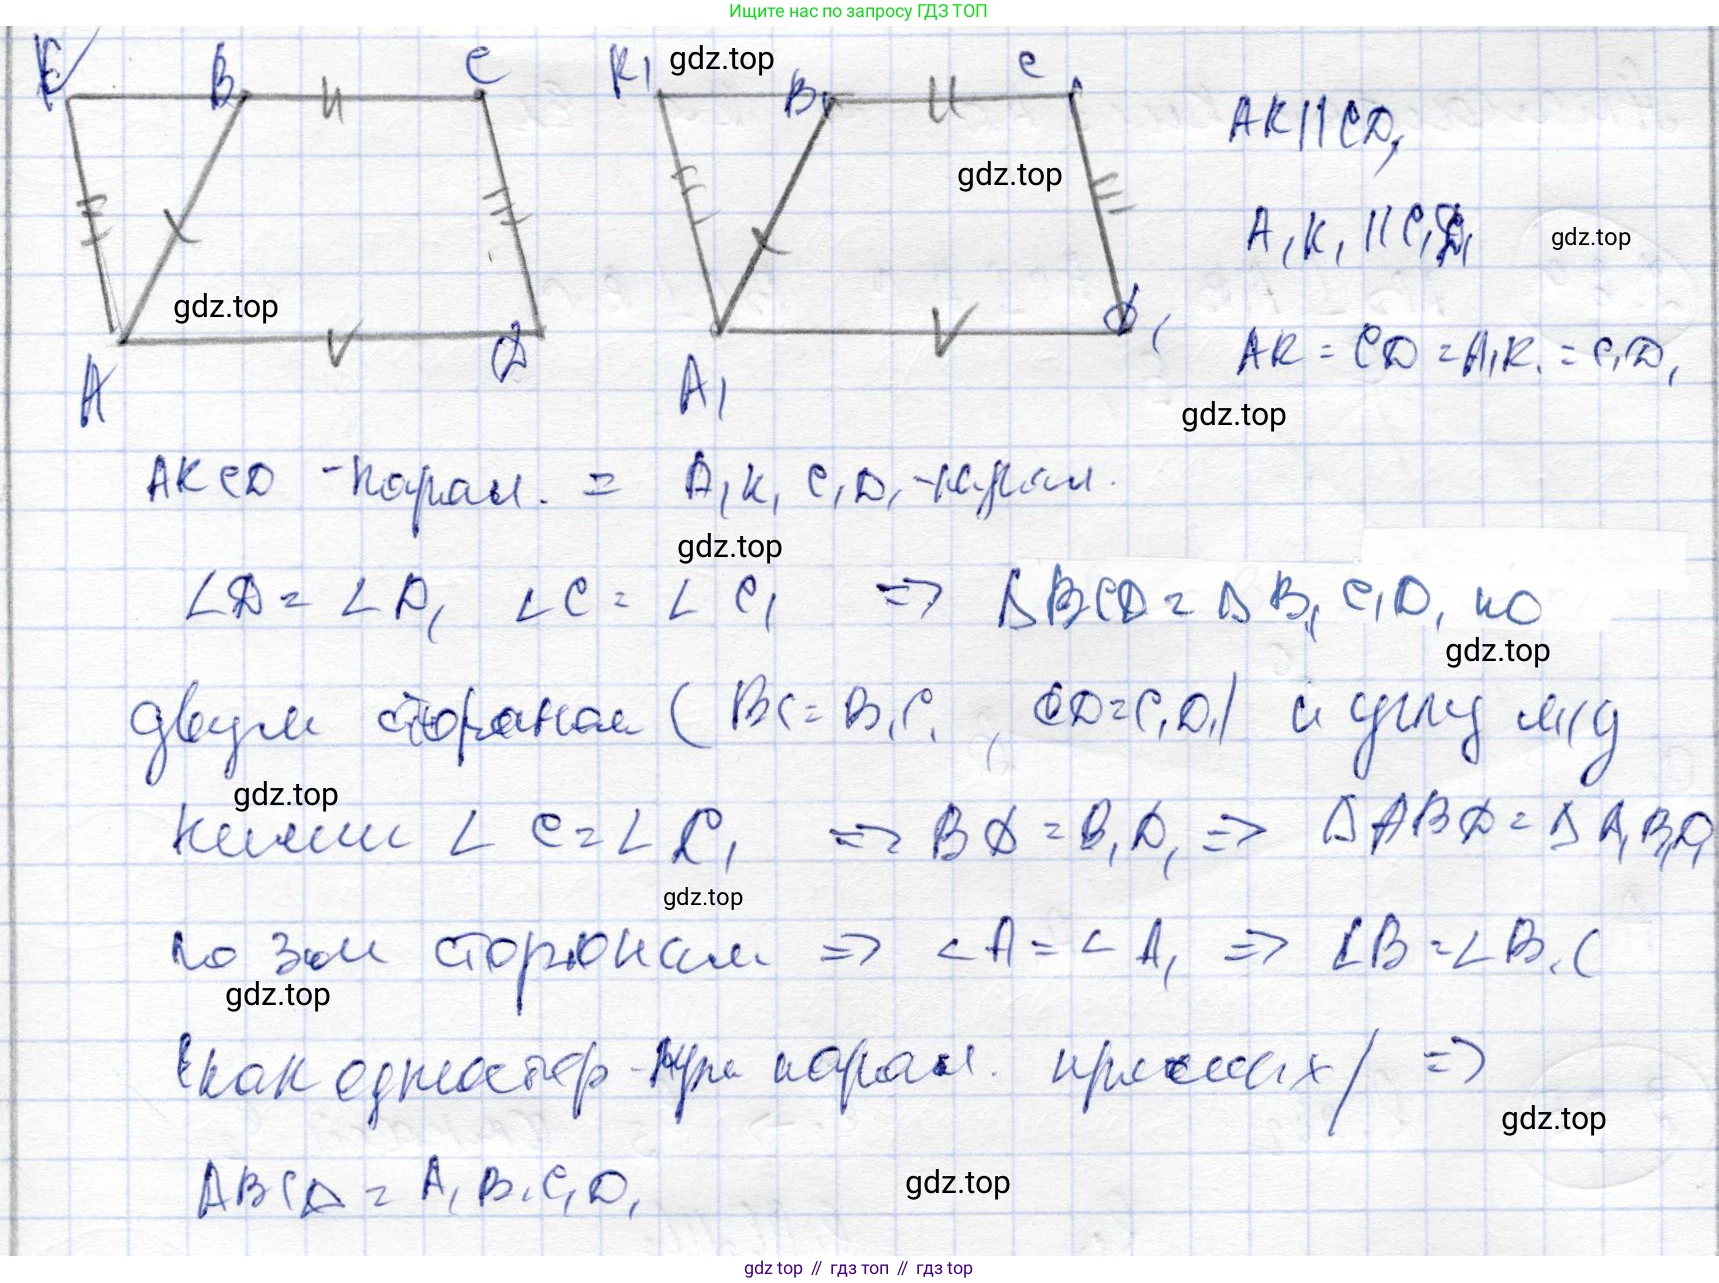 Ищите нас по запросу ГДЗ ТОП
K B C K1 B1 C gdz.top
AK||CD,
gdz.top
A1K1||C1D1
gdz.top
gdz.top
A D A1 D1
AK = CD = A1K1 = C1D1
gdz.top
AKCD - парал. = A1K1C1D1 - парал.
gdz.top
∠D = ∠D1 ∠C = ∠C1 => ΔBCD = ΔB1C1D1 по
gdz.top
двум сторонам (BC = B1C1, CD = C1D1) и углу м/д
gdz.top
ними ∠C = ∠C1 => BD = B1D1 => ΔABD = ΔA1B1D1
gdz.top
по 3ем сторонам => ∠A = ∠A1 => ∠B = ∠B1 (
gdz.top
(как одностор при парал. прямых) =>
gdz.top
ABCD = A1B1C1D1
gdz.top
gdz top // гдз топ // гдз top